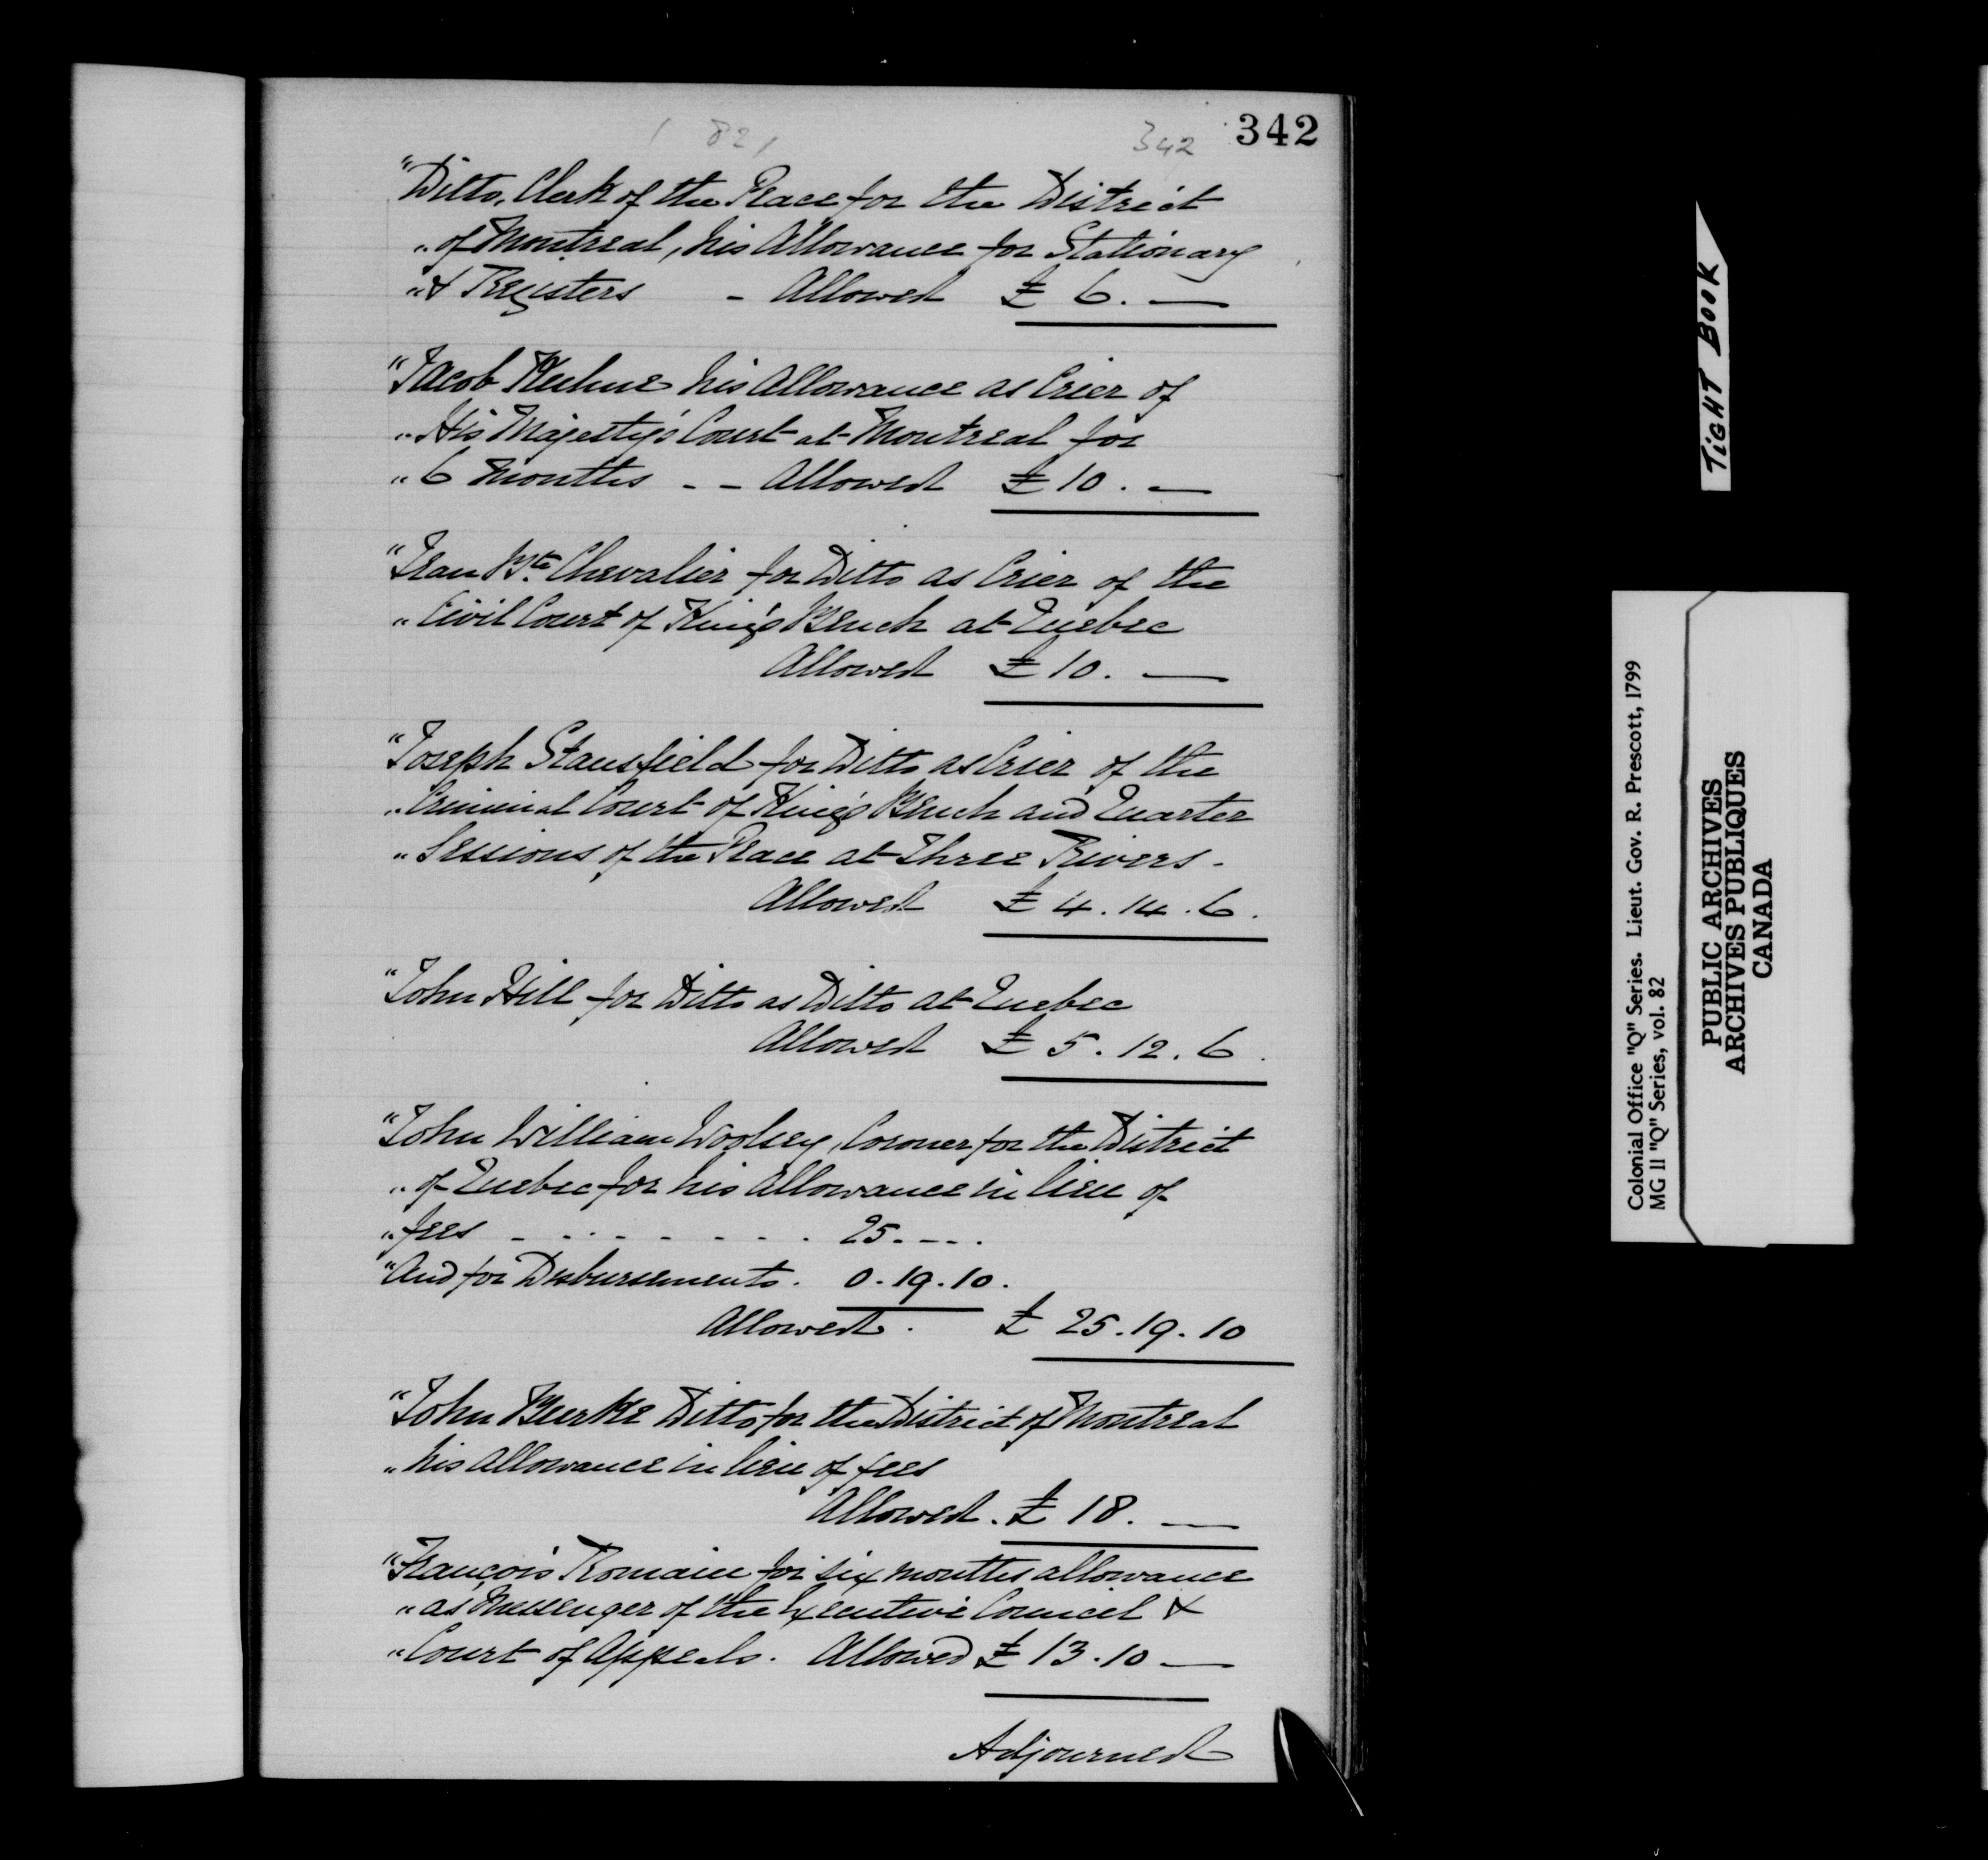 342
( 82 )
342
"Ditto, Clerk of the Peace for the District
" of Montreal, his Allowance for Stationary
" & Registers - Allowed £ 6. —
"Jacob Kuhne his Allowance as Crier of
" His Majesty's Court at Montreal for
" 6 months - - Allowed £ 10. —
"Jean Bte Chevalier for Ditto as Crier of the
" Civil Court of King's Bench at Quebec
Allowed £ 10. —
"Joseph Stansfield for Ditto as Crier of the
" Criminal Court of King's Bench and Quarter
" Sessions of the Peace at Three Rivers -
Allowed £ 4. 14. 6.
"John Hill for Ditto as Ditto at Quebec
Allowed £ 5. 12. 6.
"John William Woolsey, Coroner for the District
" of Quebec for his allowance in lieu of
" fees - - - - - - - - 25. - - .
"And for Disbursements. 0. 19. 10.
Allowed. £ 25. 19. 10
"John Burke Ditto for the District of Montreal
" his allowance in lieu of fees
Allowed. £ 18. —
"François Romain for six months allowance
" as Messenger of the Executive Council &
" Court of Appeals. Allowed £ 13. 10 —
Adjourned
TIGHT BOOK
Colonial Office "Q" Series. Lieut. Gov. R. Prescott, 1799
MG 11 "Q" Series, vol. 82
PUBLIC ARCHIVES
ARCHIVES PUBLIQUES
CANADA